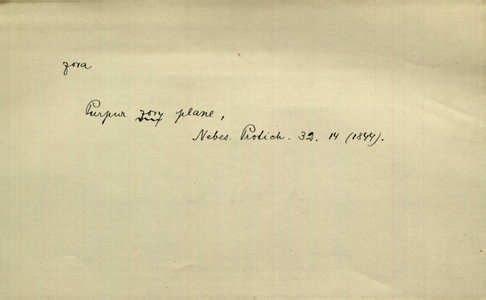 zora
Purpur zory plane,
Nebes. Protich. 32. 14 (1844).